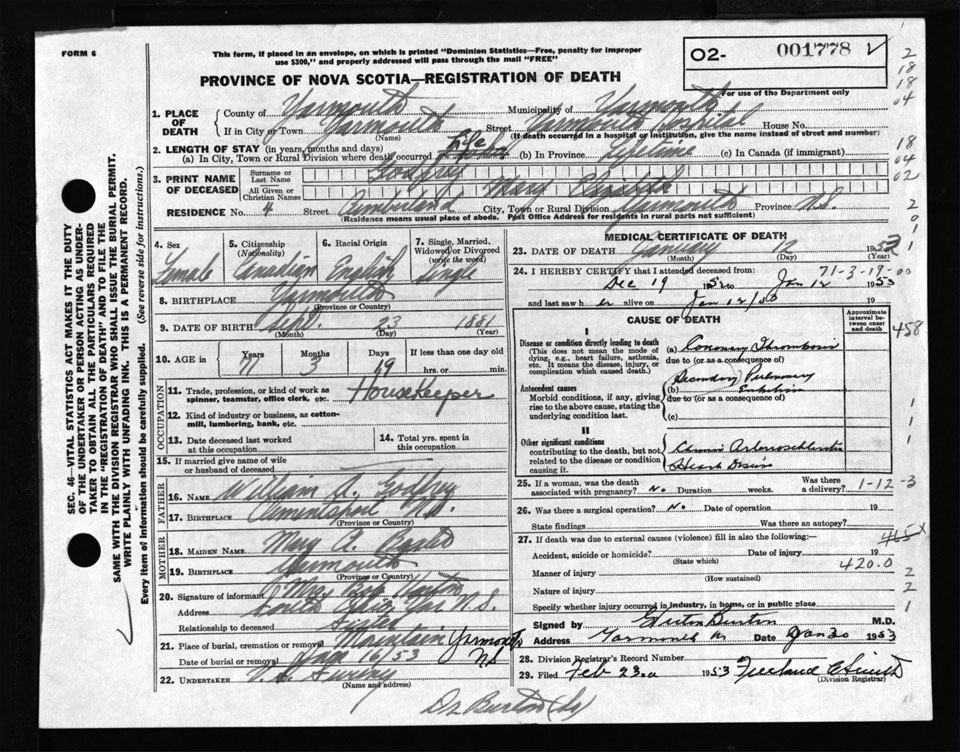 FORM 6
This form, if placed in an envelope, on which is printed "Dominion Statistics—Free, penalty for improper
use $300," and properly addressed will pass through the mail "FREE"
O2- 001778
For use of the Department only
PROVINCE OF NOVA SCOTIA—REGISTRATION OF DEATH
SEC. 46—VITAL STATISTICS ACT MAKES IT THE DUTY
OF THE UNDERTAKER OR PERSON ACTING AS UNDER-
TAKER TO OBTAIN ALL THE PARTICULARS REQUIRED
IN THE "REGISTRATION OF DEATH" AND TO FILE THE
SAME WITH THE DIVISION REGISTRAR WHO SHALL ISSUE THE BURIAL PERMIT.
WRITE PLAINLY WITH UNFADING INK. THIS IS A PERMANENT RECORD.
Every item of information should be carefully supplied. (See reverse side for instructions.)
1. PLACE OF DEATH
County of Yarmouth Municipality of Yarmouth
If in City or Town Yarmouth Street Hospital House No.
(Name) (If death occurred in a hospital or institution, give the name instead of street and number)
2. LENGTH OF STAY (in years, months and days)
(a) In City, Town or Rural Division where death occurred Life (b) In Province Lifetime (c) In Canada (if immigrant)
3. PRINT NAME OF DECEASED
Surname or Last Name Godfrey
All Given or Christian Names Mary Elizabeth
RESIDENCE No. 4 Street Cumberland City, Town or Rural Division Yarmouth Province N.S.
(Residence means usual place of abode. Post Office Address for residents in rural parts not sufficient)
4. Sex Female
5. Citizenship (Nationality) Canadian
6. Racial Origin English
7. Single, Married, Widowed or Divorced (write the word) Single
8. BIRTHPLACE Yarmouth
(Province or Country)
9. DATE OF BIRTH Sept. 23 1881
(Month) (Day) (Year)
10. AGE in Years 71 Months 3 Days 19 If less than one day old hrs. or min.
OCCUPATION
11. Trade, profession, or kind of work as spinner, teamster, office clerk, etc. HouseKeeper
12. Kind of industry or business, as cotton-mill, lumbering, bank, etc.
13. Date deceased last worked at this occupation
14. Total yrs. spent in this occupation
15. If married give name of wife or husband of deceased
FATHER
16. NAME William A. Godfrey
17. BIRTHPLACE Clementsport N.S.
(Province or Country)
MOTHER
18. MAIDEN NAME Mary A.
19. BIRTHPLACE Yarmouth
(Province or Country)
20. Signature of informant Mrs
Address Yar N.S.
Relationship to deceased Sister
21. Place of burial, cremation or removal Mountain Yarmouth NS
Date of burial or removal Jan 16/53
22. UNDERTAKER V.S. Sweeny
(Name and address)
MEDICAL CERTIFICATE OF DEATH
23. DATE OF DEATH January 12 1953
(Month) (Day) (Year)
71-3-19-00
24. I HEREBY CERTIFY that I attended deceased from:
Dec 19 1952 to Jan 12 1953
and last saw her alive on Jan 12/53 19
CAUSE OF DEATH
Approximate interval between onset and death
I
Disease or condition directly leading to death
(This does not mean the mode of dying, e.g., heart failure, asthenia, etc. It means the disease, injury, or complication which caused death.)
(a) Coronary Thrombosis
due to (or as a consequence of)
Secondary Pulmonary
(b) Embolism
Antecedent causes
Morbid conditions, if any, giving rise to the above cause, stating the underlying condition last.
due to (or as a consequence of)
(c)
II
Other significant conditions
contributing to the death, but not related to the disease or condition causing it.
Chronic Arteriosclerotic
Heart Disease
25. If a woman, was the death associated with pregnancy? No Duration weeks. Was there a delivery? 1-12-3
26. Was there a surgical operation? No Date of operation 19
State findings Was there an autopsy?
27. If death was due to external causes (violence) fill in also the following:—
Accident, suicide or homicide? Date of injury 19
(State which) 420.0
Manner of injury
(How sustained)
Nature of injury
Specify whether injury occurred in industry, in home, or in public place
Signed by Burton M.D.
Address Yarmouth NS Date Jan 20 1953
28. Division Registrar's Record Number
29. Filed Feb 23 1953 Freeland C Smith
(Division Registrar)
Dr Burton (Ss)
2
18
18
04
18
04
02
2
0
1
1
458
1
1
1
465X
2
2
1